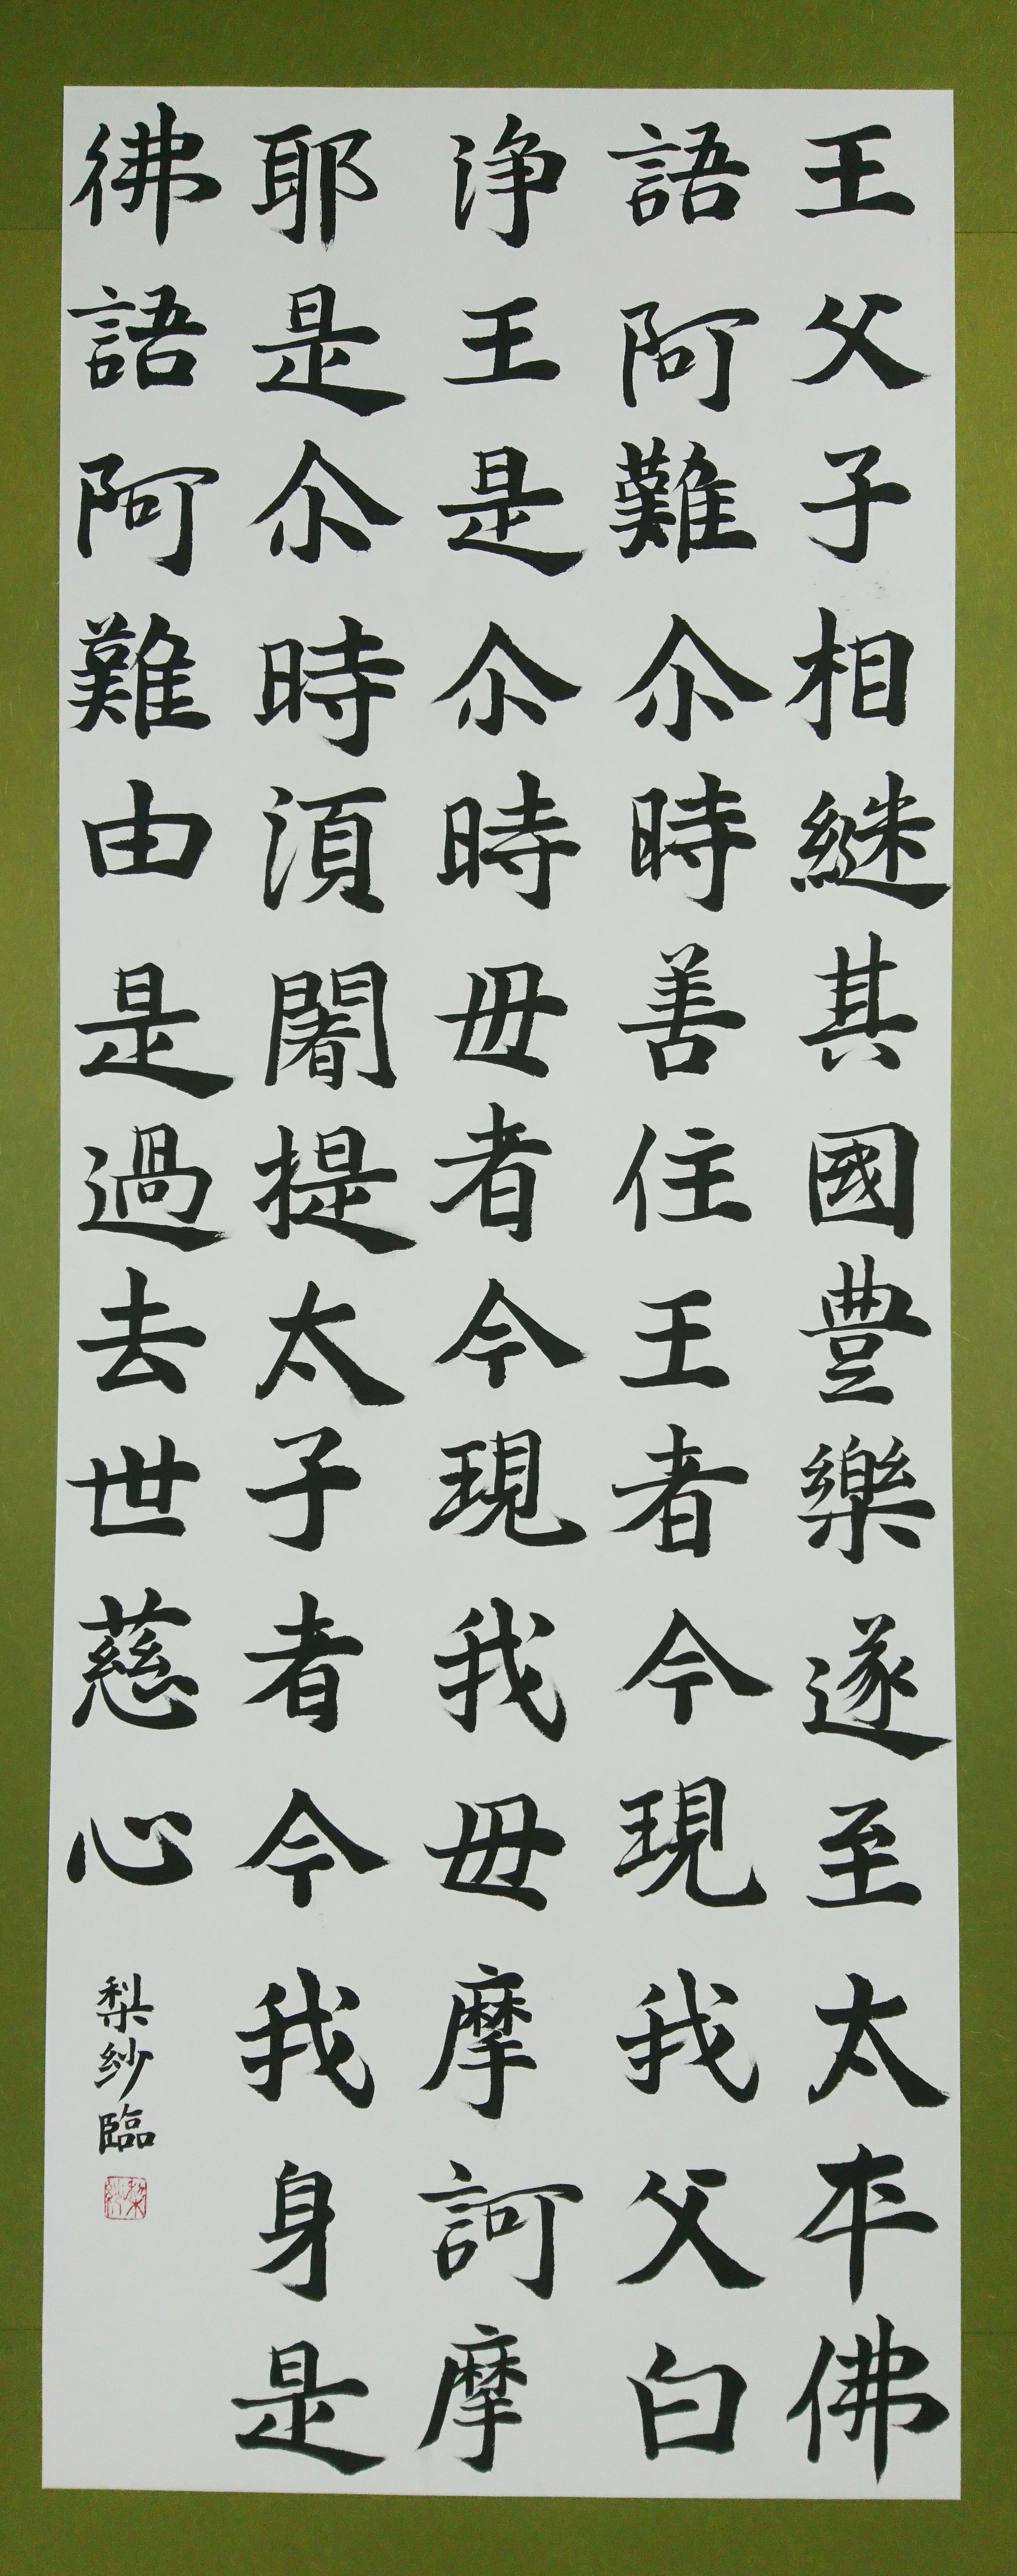 王父子相継其國豊樂遂至太平佛
語阿難尒時善住王者今現我父白
浄王是尒時毋者今現我毋摩訶摩
耶是尒時湏闍提太子者今我身是
彿語阿難由是過去世慈心
梨紗臨